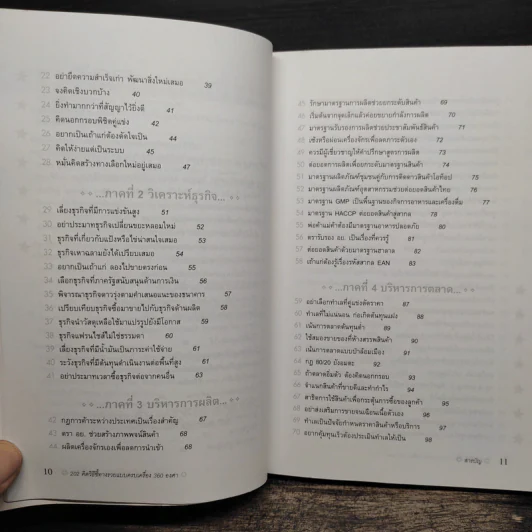 22 อย่ายึดความสำเร็จเก่า พัฒนาสิ่งใหม่เสมอ 39
23 จงคิดเชิงบวกบ้าง 40
24 ยิ่งทำมากกว่าที่สัญญาไว้ยิ่งดี 41
25 คิดนอกกรอบพิชิตคู่แข่ง 42
26 อยากเป็นเถ้าแก่ต้องตัดใจเป็น 44
27 คิดให้ง่ายแต่เป็นระบบ 45
28 หมั่นคิดสร้างทางเลือกใหม่อยู่เสมอ 47
...ภาคที่ 2 วิเคราะห์ธุรกิจ...
29 เลี่ยงธุรกิจที่มีการแข่งขันสูง 51
30 อย่าประมาทธุรกิจเปลี่ยนขยะหลอมใหม่ 52
31 ธุรกิจที่เกี่ยวกับแป้งหรือไข่น่าสนใจเสมอ 53
32 ธุรกิจเหาฉลามยังไงก็ได้เปรียบเสมอ 54
33 อยากเป็นเถ้าแก่ ลองไปขายตรงก่อน 55
34 เลือกธุรกิจที่ภาครัฐสนับสนุนด้านการเงิน 56
35 พิจารณาธุรกิจดาวรุ่งตามคำเสนอแนะของธนาคาร 57
36 เปรียบเทียบธุรกิจซื้อมาขายไปกับธุรกิจด้านผลิต 58
37 ธุรกิจนำวัสดุเหลือใช้มาแปรรูปยังมีโอกาส 59
38 ธุรกิจแฟรนไชส์ไม่ใช่ธรรมดา 60
39 เลี่ยงธุรกิจที่มีน้ำมันเป็นภาระค่าใช้จ่าย 61
40 ระวังธุรกิจที่มีต้นทุนดำเนินงานต่อพื้นที่สูง 61
41 อย่าประมาทเวลาซื้อธุรกิจต่อจากคนอื่น 63
...ภาคที่ 3 บริหารการผลิต...
42 กฎการค้าระหว่างประเทศเป็นเรื่องสำคัญ 67
43 ตรา อย. ช่วยสร้างภาพพจน์สินค้า 68
44 ผลิตเครื่องจักรเองเพื่อลดการนำเข้า 68
10 202 คิดวิธีชี้ทางรวยแบบครบเครื่อง 360 องศา
45 รักษามาตรฐานการผลิตช่วยยกระดับสินค้า 69
46 เริ่มต้นจากจุดเล็กแล้วค่อยขยายกำลังการผลิต 70
47 มาตรฐานรับรองการผลิตช่วยประชาสัมพันธ์สินค้า 71
48 เช้งหรือผ่อนเครื่องจักรเพื่อลดภาระตัวเอง 72
49 ควรมีผู้เชี่ยวชาญให้คำปรึกษาสูตรการผลิต 73
50 ต่อยอดการผลิตเพื่อยกระดับมาตรฐานสินค้า 74
51 มาตรฐานผลิตภัณฑ์ชุมชนคู่กับการติดดาวสินค้าโอท็อป 75
52 มาตรฐานผลิตภัณฑ์อุตสาหกรรมช่วยต่อยอดสินค้าไทย 76
53 มาตรฐาน GMP เป็นพื้นฐานของกิจการอาหารและเครื่องดื่ม 77
54 มาตรฐาน HACCP ต่อยอดสินค้าสู่สากล 78
55 พ่อค้าแม่ค้าต้องมีมาตรฐานอาหารปลอดภัย 80
56 ตรารับรอง อย. เป็นเรื่องที่ควรรู้ 81
57 ต่อยอดสินค้าด้วยมาตรฐานฮาลาล 82
58 เถ้าแก่ต้องรู้เรื่องรหัสสากล EAN 83
...ภาคที่ 4 บริหารการตลาด...
59 อย่าเลือกทำเลที่คู่แข่งตัดราคา 87
60 ทำเลที่ไม่แน่นอน ก่อเกิดต้นทุนแฝง 88
61 เน้นการตลาดต้นทุนต่ำ 89
62 ใช้สมองขายของที่ห้างสรรพสินค้า 90
63 เน้นการตลาดแบบป่าล้อมเมือง 91
64 กฎ 80/20 ยังอมตะ 92
65 ถ้าตลาดอิ่มตัว ต้องคิดนอกกรอบ 93
66 จำแนกสินค้าที่ขายดีและทำกำไร 94
67 สาธิตการใช้สินค้าเพื่อกระตุ้นการซื้อของลูกค้า 95
68 อย่าส่งเสริมการขายจนเฉือนเนื้อตัวเอง 96
69 ทำเลเป็นปัจจัยกำหนดราคาสินค้าหรือบริการ 97
70 อยากคุ้มทุนเร็วต้องประเมินทำเลให้เป็น 98
สารบัญ 11